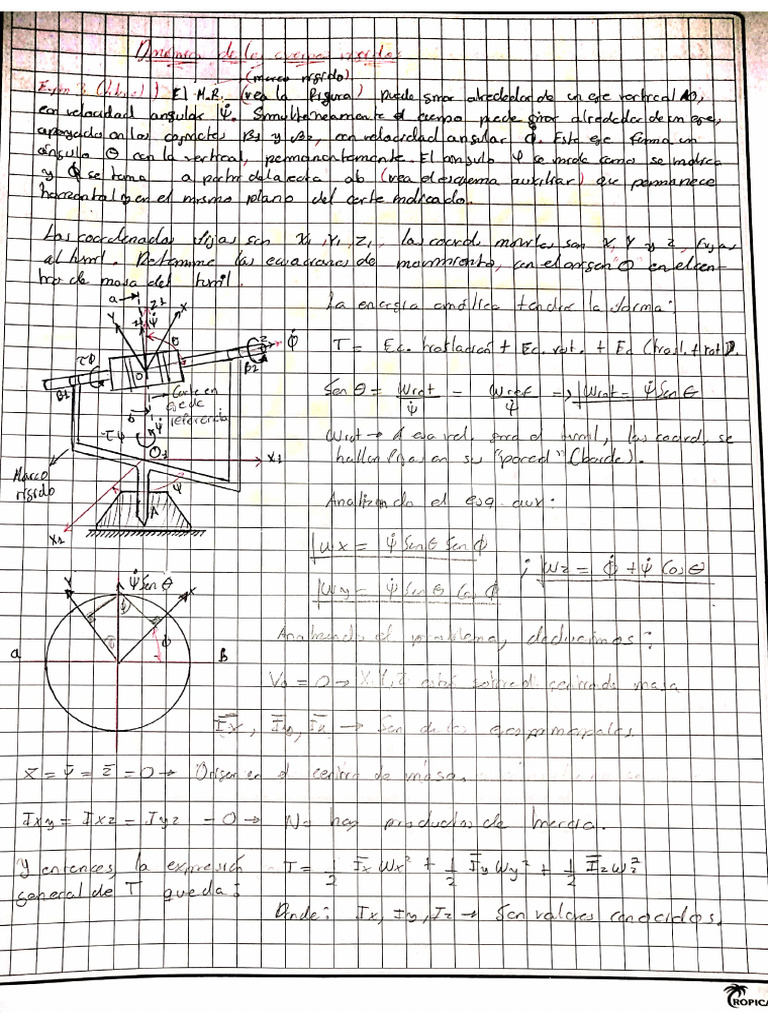 Dinámica de los cuerpos rígidos
(marco rígido)
El M.R. (vea la figura) puede girar alrededor de un eje vertical AO,
con velocidad angular ψ̇. Simultáneamente el cuerpo puede girar alrededor de un eje,
apoyado en los cojinetes B1 y B2, con velocidad angular ϕ̇. Este eje forma un
ángulo θ con la vertical, permanentemente. El angulo ψ se mide como se indica
y ϕ se toma a partir de la recta ab (vea el esquema auxiliar) que permanece
horizontal y en el mismo plano del corte indicado.
Las coordenadas fijas son X1, Y1, Z1, las coord. moviles son X, Y y Z, fijas
al . Determine las ecuaciones de movimiento, con el origen O en el cen-
tro de masa del .
La energía cinética tendrá la forma:
T = Ec. traslación + Ec. rot. + Ec (trasl. + rot).
Sen θ = Wrot/ψ̇ - Wrot/ψ̇ => Wrot = ψ̇ Sen θ
Wrot → las coord. se
hallan fijas en su "pared" (borde).
Analizando el esq. aux:
Wx = ψ̇ Sen θ Sen ϕ
; Wz = ϕ̇ + ψ̇ Cos θ
Wy = ψ̇ Sen θ Cos ϕ
Analizando el problema, deducimos:
Vo = 0 → X, Y, Z están sobre el centro de masa
Īx, Īy, Īz → Son de los ejes principales.
x̄ = ȳ = z̄ = 0 → Origen en el centro de masa.
Ixy = Ixz = Iyz = 0 → No hay productos de Inercia.
Y entonces, la expresión
general de T queda:
T = 1/2 Īx Wx² + 1/2 Īy Wy² + 1/2 Īz Wz²
Donde: Ix, Iy, Iz → Son valores conocidos.
a
Z1
X
Y
ψ̇
θ
ϕ̇
τϕ
O
B1
B2
Corte en
eje de
referencia
b
τψ
O1
X1
Marco
rígido
ψ
A
X1
ψ̇ Sen θ
Y
X
ϕ
a
B
TROPICA